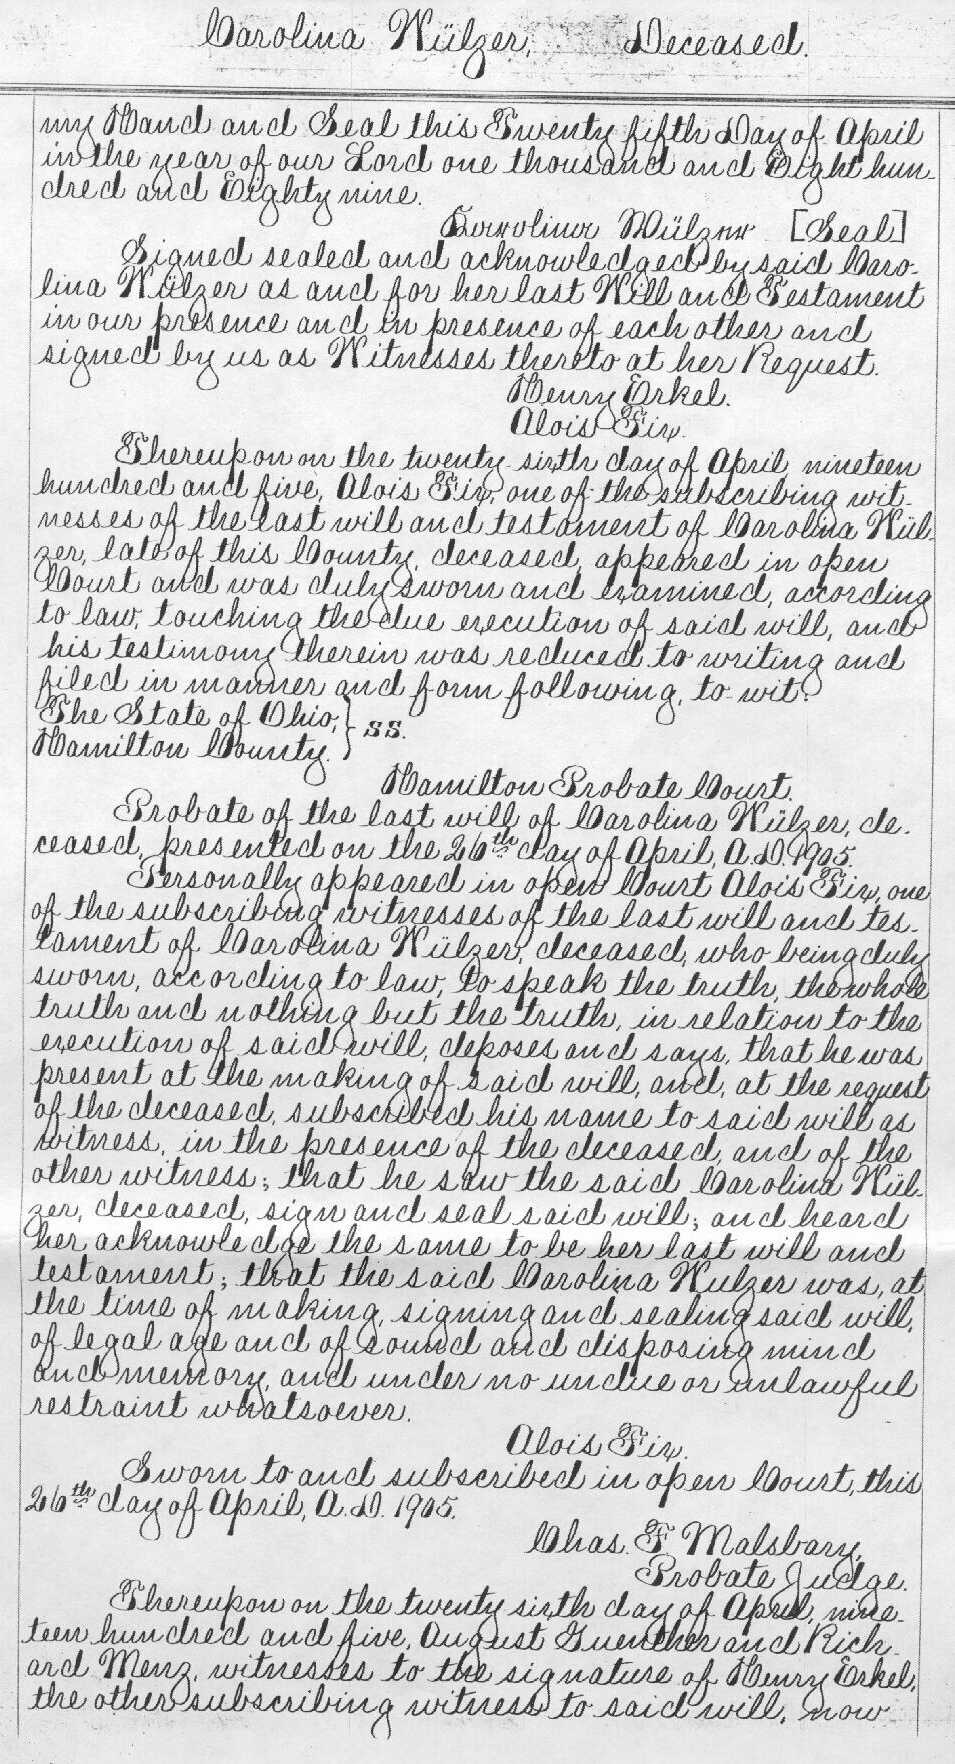 Carolina Wülzer, Deceased.
my Hand and Seal this Twenty fifth Day of April
in the year of our Lord one thousand and Eight hun-
dred and Eighty nine.
Karolina Wülzer [Seal]
Signed sealed and acknowledged by said Caro-
lina Wülzer as and for her last Will and Testament
in our presence and in presence of each other and
signed by us as Witnesses thereto at her Request.
Henry Erkel.
Alois Fix.
Thereupon on the twenty-sixth day of April, nineteen
hundred and five, Alois Fix, one of the subscribing wit-
nesses of the last will and testament of Carolina Wül-
zer, late of this County, deceased, appeared in open
Court and was duly sworn and examined, according
to law, touching the due execution of said will, and
his testimony therein was reduced to writing and
filed in manner and form following, to-wit:
The State of Ohio, } ss.
Hamilton County. }
Hamilton Probate Court.
Probate of the last will of Carolina Wülzer, de-
ceased, presented on the 26th day of April, A.D. 1905.
Personally appeared in open Court Alois Fix, one
of the subscribing witnesses of the last will and tes-
tament of Carolina Wülzer, deceased, who being duly
sworn, according to law, to speak the truth, the whole
truth and nothing but the truth, in relation to the
execution of said will, deposes and says, that he was
present at the making of said will, and, at the request
of the deceased, subscribed his name to said will as
witness, in the presence of the deceased, and of the
other witness; that he saw the said Carolina Wül-
zer, deceased, sign and seal said will; and heard
her acknowledge the same to be her last will and
testament; that the said Carolina Wulzer was, at
the time of making, signing and sealing said will,
of legal age and of sound and disposing mind
and memory, and under no undue or unlawful
restraint whatsoever.
Alois Fix.
Sworn to and subscribed in open Court, this
26th day of April, A.D. 1905.
Chas. F. Malsbary,
Probate Judge.
Thereupon on the twenty sixth day of April, nine-
teen hundred and five, August Guenther and Rich-
ard Menz, witnesses to the signature of Henry Erkel,
the other subscribing witness to said will, now